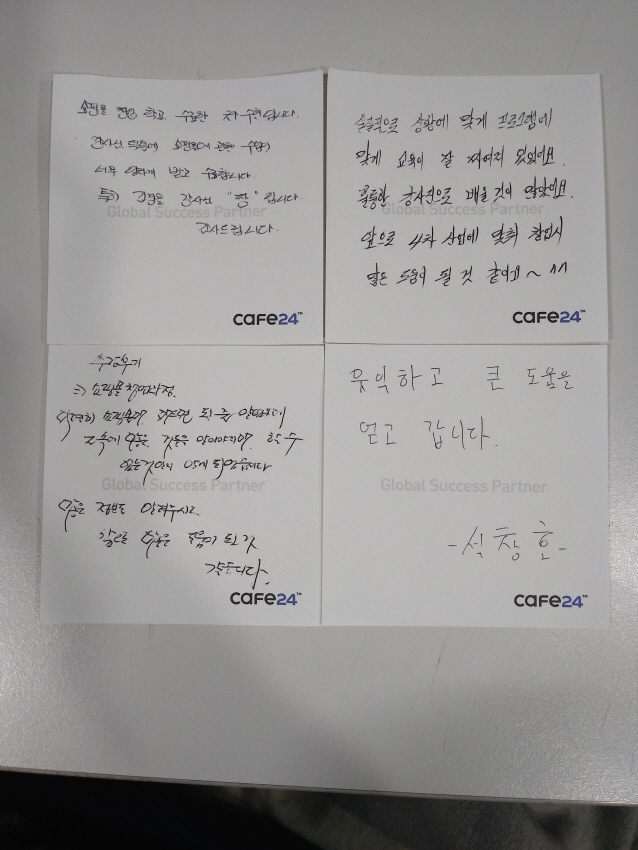 쇼핑몰 창업 학교 수료한 수현입니다.
강사님 덕분에 쇼핑몰에 관한 수업
너무 알차게 받고 수료합니다
특히 강사님 "짱" 입니다.
감사드립니다.
Global Success Partner
cafe24™
실질적으로 상황에 맞게 프로그램에
맞게 교육이 잘 짜여져 있었어요.
훌륭한 강사진으로 배울 것이 많았어요.
앞으로 4차 산업에 맞춰 창업시
많은 도움이 될 것 같아요~ ^^
Global Success Partner
cafe24™
수강후기
⇒ 쇼핑몰창업과정.
쇼핑몰이 하면 되는 줄 알았는데
그 속에 많은 것들을 알아야되며, 할 수
있는것이 알게 되었습니다
Global Success Partner
많은 정보도 알려주시고.
앞으로 많은 도움이 될 것
같습니다.
cafe24™
유익하고 큰 도움을
얻고 갑니다.
Global Success Partner
-석창훈-
cafe24™